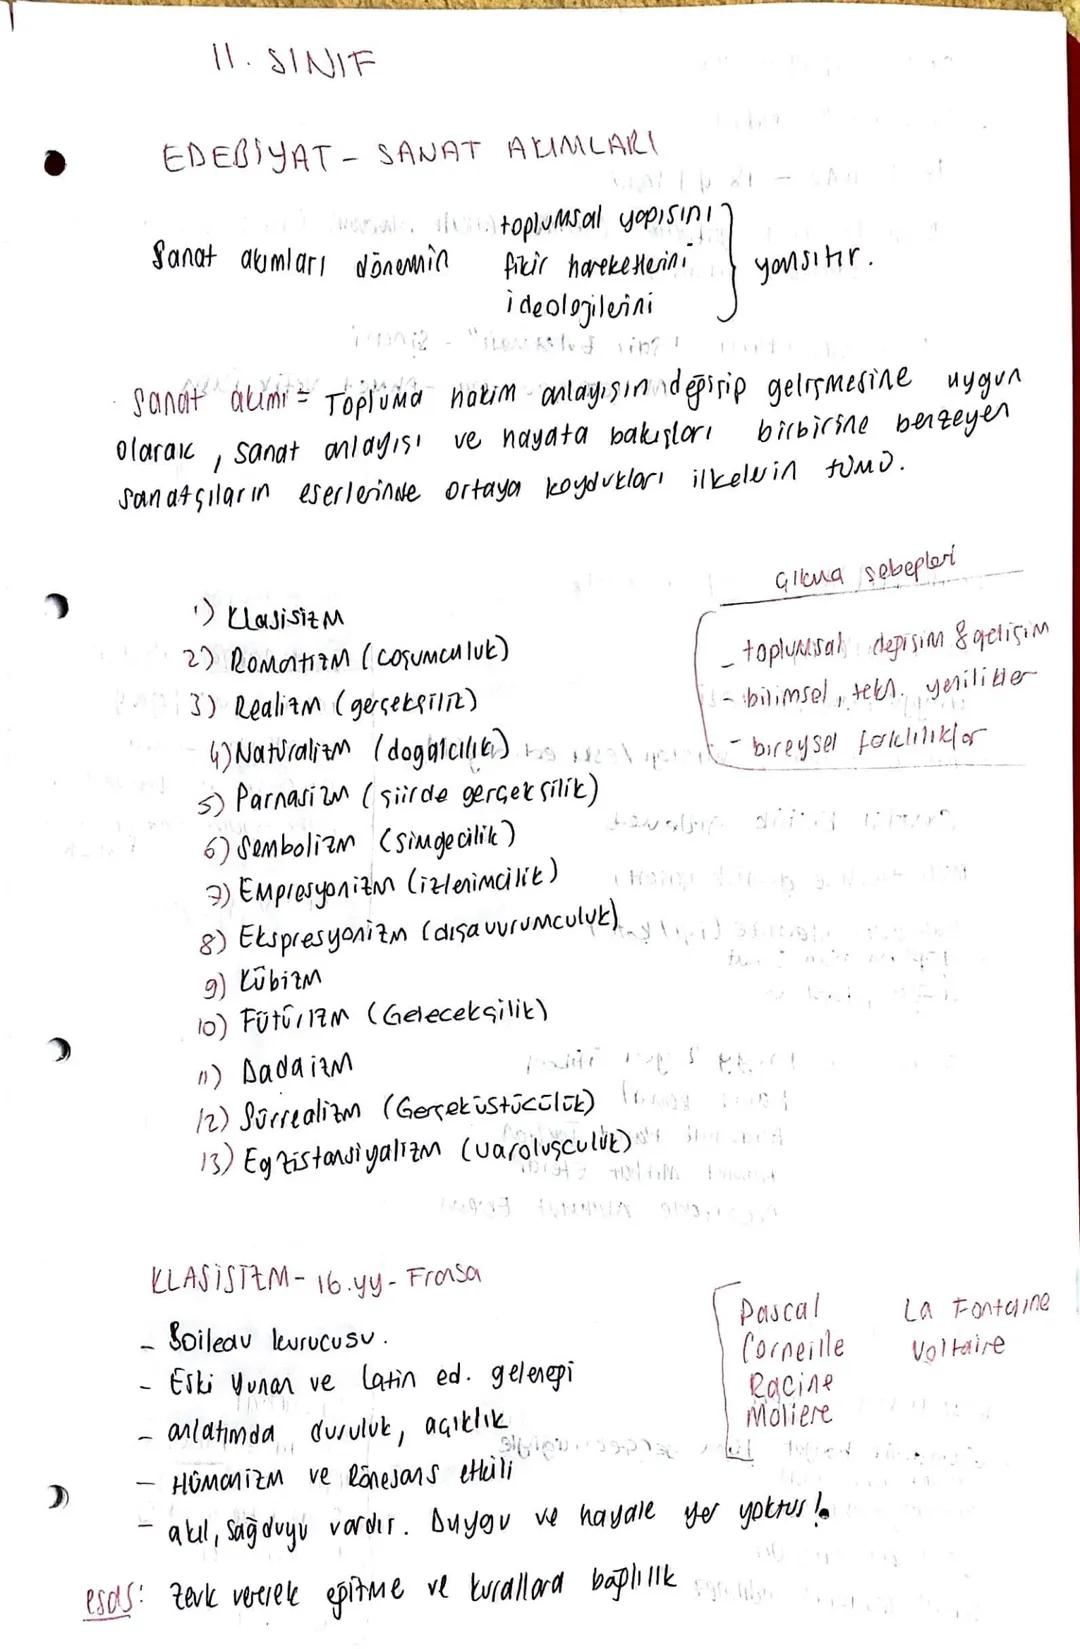 11. SINIF
EDEBİYAT - SANAT AKIMLARI
Sanat akımları dönemin
toplumsal yapısını
fikir hareketlerini
ideolojilerini
yansıtır.
Sanat akımı = Topluma hakim anlayışın değişip gelişmesine uygun
olarak, sanat anlayışı ve hayata bakışları birbirine benzeyen
sanatçıların eserlerinde ortaya koydukları ilkelerin tümü.
Çıkma sebepleri
- toplumsal değişim & gelişim
- bilimsel, tekn. yenilikler
- bireysel farklılıklar
1) Klasisizm
2) Romantizm (coşumculuk)
3) Realizm (gerçekçilik)
4) Natüralizm (doğalcılık)
5) Parnasizm (şiirde gerçekçilik)
6) Sembolizm (simgecilik)
7) Empresyonizm (izlenimcilik)
8) Ekspresyonizm (dışavurumculuk)
9) Kübizm
10) Fütürizm (Gelecekçilik)
11) Dadaizm
12) Sürrealizm (Gerçeküstücülük)
13) Egzistansiyalizm (varoluşculuk)
KLASİSİZM - 16.yy - Fransa
- Boileau kurucusu.
- Eski Yunan ve Latin ed. geleneği
- anlatımda duruluk, açıklık
- Hümanizm ve Rönesans etkili
- akıl, sağduyu vardır. Duygu ve hayale yer yoktur!
esas: Zevk vererek eğitme ve kurallara bağlılık
Pascal La Fontaine
Corneille Voltaire
Racine
Moliere